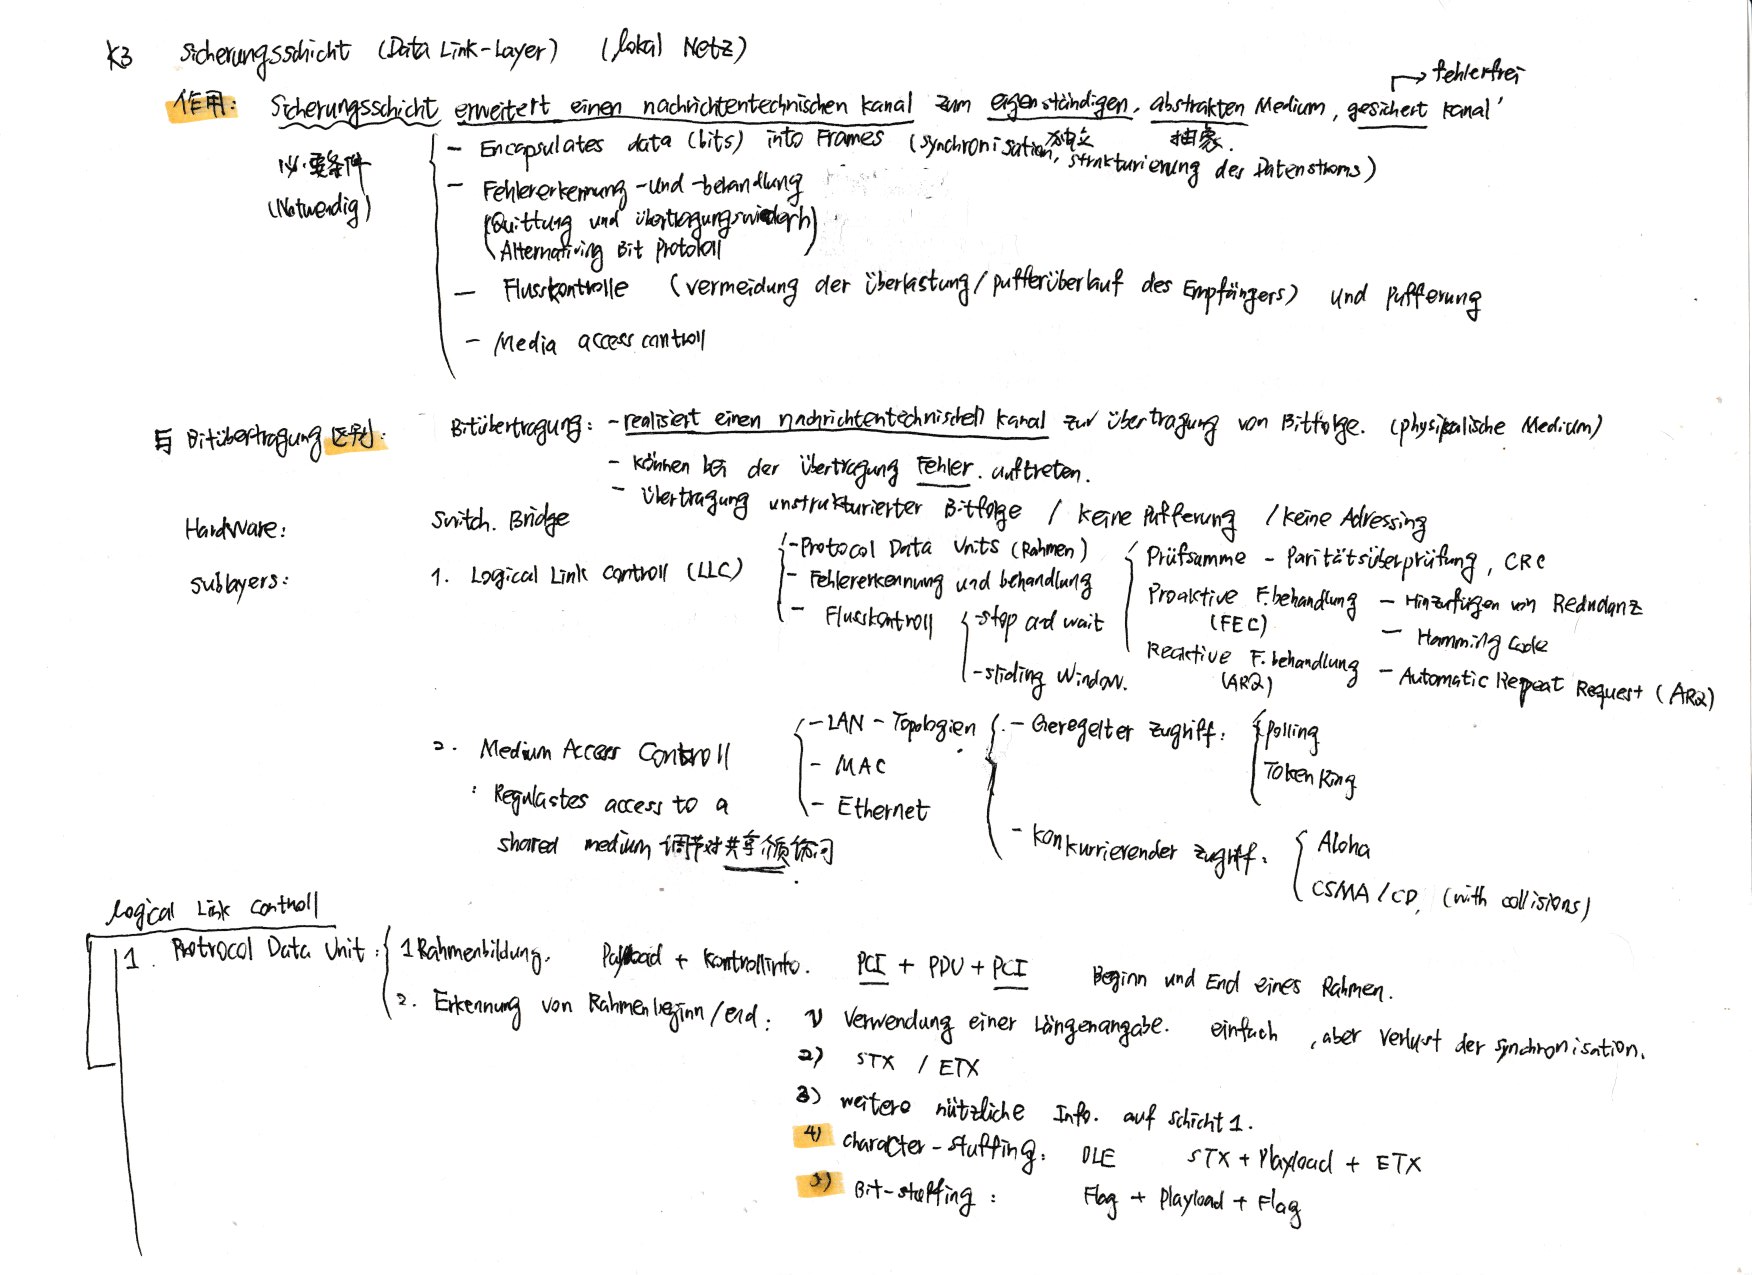 K3 Sicherungsschicht (Data Link-Layer) (lokal Netz)
→ fehlerfrei
作用: Sicherungsschicht erweitert einen nachrichtentechnischen Kanal zum eigenständigen, abstrakten Medium, gesichert Kanal'
独立 抽象.
必要条件
(Notwendig)
- Encapsulates data (bits) into Frames (Synchronisation, Strukturierung des Datenstroms)
- Fehlererkennung -und -behandlung
(Quittung und Übertragungswiederh)
Alternativing Bit Protokoll
- Flusskontrolle (vermeidung der Überlastung/Pufferüberlauf des Empfängers) und Pufferung
- Media access controll
与 Bitübertragung 区别: Bitübertragung: - realisiert einen nachrichtentechnischen Kanal zur Übertragung von Bitfolge. (physikalische Medium)
- können bei der Übertragung Fehler. auftreten.
- Übertragung unstrukturierter Bitfolge / keine Pufferung / keine Adressing
Hardware: Switch. Bridge
Sublayers: 1. Logical Link Controll (LLC)
- Protocol Data Units (Rahmen)
- Fehlererkennung und behandlung
- Flusskontroll
- stop and wait
- sliding Window.
Prüfsumme - Paritätsüberprüfung, CRC
Proaktive F.behandlung - Hinzufügen von Redundanz
(FEC) - Hamming Code
Reaktive F.behandlung - Automatic Repeat Request (ARQ)
(ARQ)
2. Medium Access Controll
: Regulastes access to a
shared medium 调节对共享介质访问
- LAN - Topologien
- MAC
- Ethernet
- Geregelter Zugriff: Polling
Token Ring
- Konkurrierender Zugriff: Aloha
CSMA/CD, (with collisions)
Logical Link Controll
1. Protrocol Data Unit: 1 Rahmenbildung. Payload + Kontrollinfo. PCI + PDU + PCI Beginn und End eines Rahmen.
2. Erkennung von Rahmenbeginn/end: 1) Verwendung einer Längenangabe. einfach, aber Verlust der Synchronisation.
2) STX / ETX
3) weitere nützliche Info. auf Schicht 1.
4) character-stuffing: DLE STX + Playload + ETX
5) Bit-stuffing: Flag + Playload + Flag